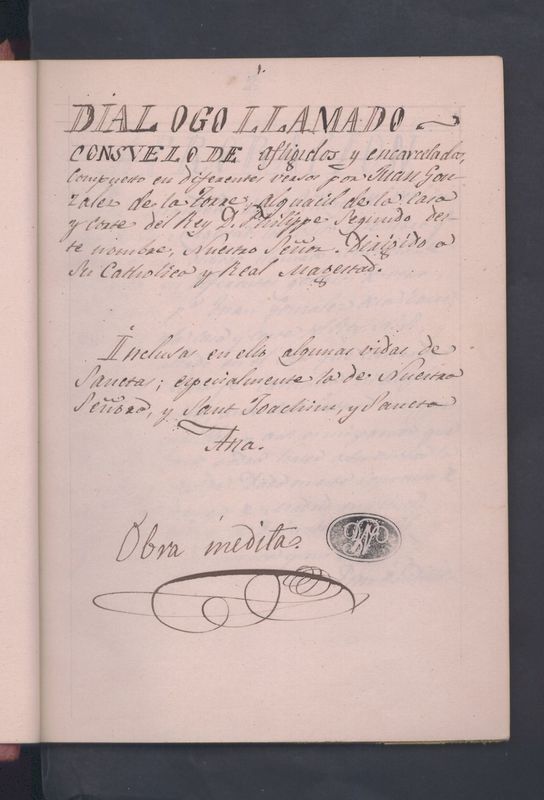 1.
DIALOGO LLAMADO
CONSVELO DE afligidos y encarcelados,
Compuesto en diferentes versos por Juan Gon-
zalez de la Torre, alguacil de la Casa
y corte del Rey D. Philippe Segundo des-
te nombre, Nuestro Señor. Dirigido a
Su Catholica y Real Magestad.
Inclusas en ello algunas vidas de
Sanctas; especialmente la de Nuestra
Señora, y Sant Joachim, y Sancta
Ana.
Obra inedita.